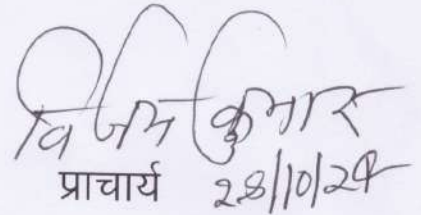 विजय कुमार
प्राचार्य 28/10/24